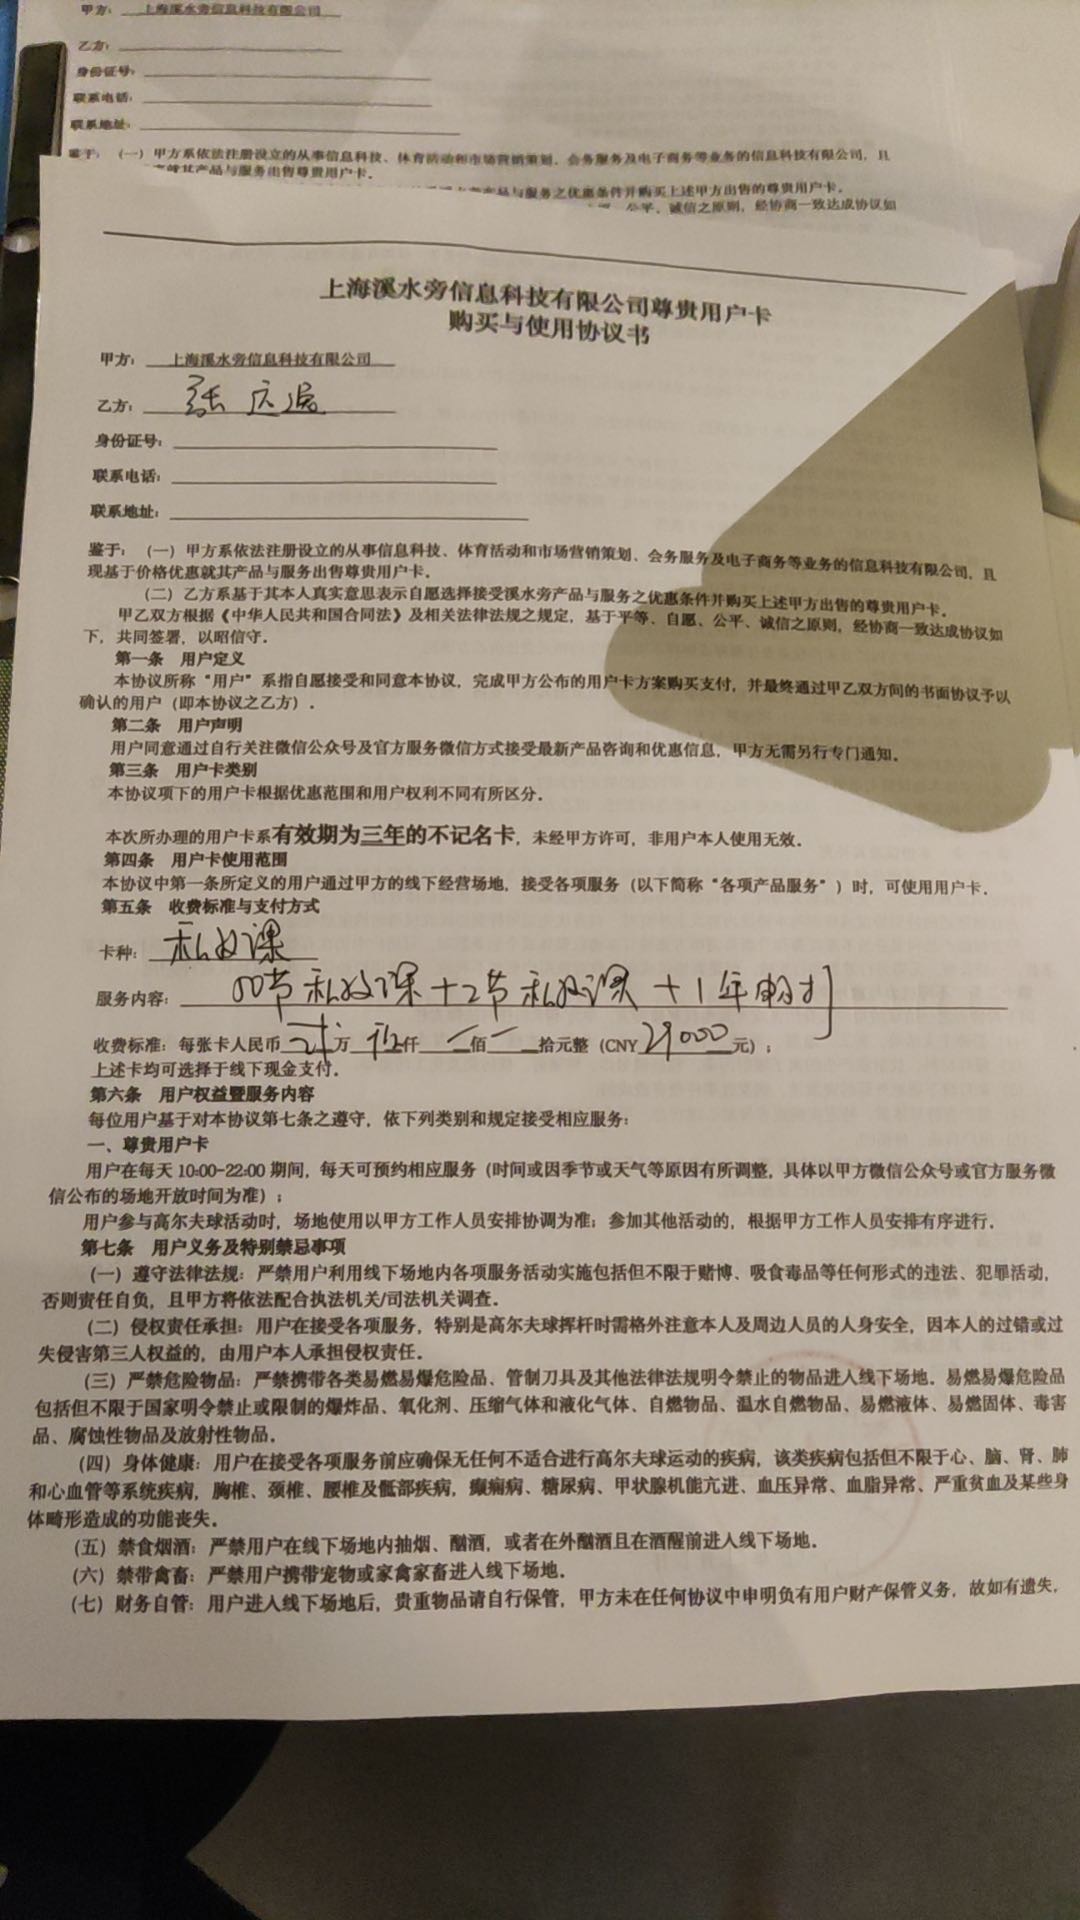 甲方： 上海溪水旁信息科技有限公司
乙方：
身份证号：
联系电话：
联系地址：
鉴于：（一）甲方系依法注册设立的从事信息科技、体育活动和市场营销策划、会务服务及电子商务等业务的信息科技有限公司，且
就其产品与服务出售尊贵用户卡。
产品与服务之优惠条件并购买上述甲方出售的尊贵用户卡。
公平、诚信之原则，经协商一致达成协议如
上海溪水旁信息科技有限公司尊贵用户卡
购买与使用协议书
甲方： 上海溪水旁信息科技有限公司
乙方： 张
身份证号：
联系电话：
联系地址：
鉴于：（一）甲方系依法注册设立的从事信息科技、体育活动和市场营销策划、会务服务及电子商务等业务的信息科技有限公司，且
现基于价格优惠就其产品与服务出售尊贵用户卡。
（二）乙方系基于其本人真实意思表示自愿选择接受溪水旁产品与服务之优惠条件并购买上述甲方出售的尊贵用户卡。
甲乙双方根据《中华人民共和国合同法》及相关法律法规之规定，基于平等、自愿、公平、诚信之原则，经协商一致达成协议如
下，共同签署，以昭信守。
第一条 用户定义
本协议所称“用户”系指自愿接受和同意本协议，完成甲方公布的用户卡方案购买支付，并最终通过甲乙双方间的书面协议予以
确认的用户（即本协议之乙方）.
第二条 用户声明
用户同意通过自行关注微信公众号及官方服务微信方式接受最新产品咨询和优惠信息，甲方无需另行专门通知。
第三条 用户卡类别
本协议项下的用户卡根据优惠范围和用户权利不同有所区分.
本次所办理的用户卡系有效期为三年的不记名卡，未经甲方许可，非用户本人使用无效。
第四条 用户卡使用范围
本协议中第一条所定义的用户通过甲方的线下经营场地，接受各项服务（以下简称“各项产品服务”）时，可使用用户卡.
第五条 收费标准与支付方式
卡种： 私教课
服务内容： 00节私教课+2节私教课+1年畅打
收费标准：每张卡人民币 贰 万 仟 一 佰 一 拾元整（CNY 29000 元）；
上述卡均可选择于线下现金支付.
第六条 用户权益暨服务内容
每位用户基于对本协议第七条之遵守，依下列类别和规定接受相应服务：
一、尊贵用户卡
用户在每天 10:00-22:00 期间，每天可预约相应服务（时间或因季节或天气等原因有所调整，具体以甲方微信公众号或官方服务微
信公布的场地开放时间为准）；
用户参与高尔夫球活动时，场地使用以甲方工作人员安排协调为准；参加其他活动的，根据甲方工作人员安排有序进行.
第七条 用户义务及特别禁忌事项
（一）遵守法律法规：严禁用户利用线下场地内各项服务活动实施包括但不限于赌博、吸食毒品等任何形式的违法、犯罪活动，
否则责任自负，且甲方将依法配合执法机关/司法机关调查.
（二）侵权责任承担：用户在接受各项服务，特别是高尔夫球挥杆时需格外注意本人及周边人员的人身安全，因本人的过错或过
失侵害第三人权益的，由用户本人承担侵权责任.
（三）严禁危险物品：严禁携带各类易燃易爆危险品、管制刀具及其他法律法规明令禁止的物品进入线下场地．易燃易爆危险品
包括但不限于国家明令禁止或限制的爆炸品、氧化剂、压缩气体和液化气体、自燃物品、温水自燃物品、易燃液体、易燃固体、毒害
品、腐蚀性物品及放射性物品.
（四）身体健康：用户在接受各项服务前应确保无任何不适合进行高尔夫球运动的疾病，该类疾病包括但不限于心、脑、肾、肺
和心血管等系统疾病，胸椎、颈椎、腰椎及骶部疾病，癫痫病、糖尿病、甲状腺机能亢进、血压异常、血脂异常、严重贫血及某些身
体畸形造成的功能丧失.
（五）禁食烟酒：严禁用户在线下场地内抽烟、酗酒，或者在外酗酒且在酒醒前进入线下场地.
（六）禁带禽畜：严禁用户携带宠物或家禽家畜进入线下场地.
（七）财务自管：用户进入线下场地后，贵重物品请自行保管，甲方未在任何协议中申明负有用户财产保管义务，故如有遗失，